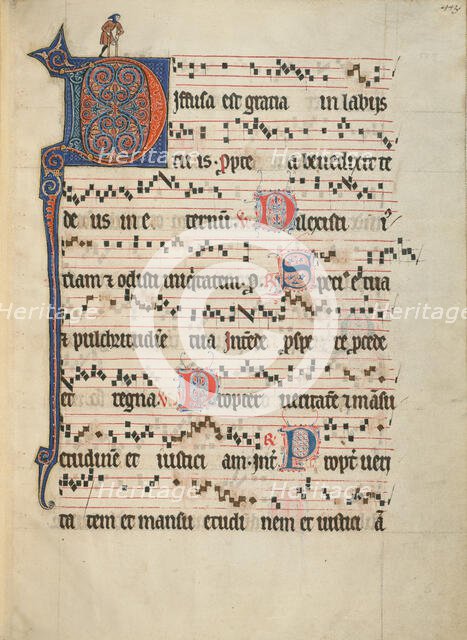 Diffusa est gracia in labijs
tuis. Ppte a benedixit te
de us in e ternu͛ ℣ Dilexisti i
ticiam & odisti iniq̇tatem. P. Speci e tua
& pulchritudie tua Intede pspe pcede
et regna ℣ Propter ueritate & mansu
etudine et iustici am. Int͛ ℟ Propt͛ ueri
ta tem et mansu etudi nem et iusticiā
Heritage
Heritage
Heritage
Heritage
Heritage
Heritage
Heritage